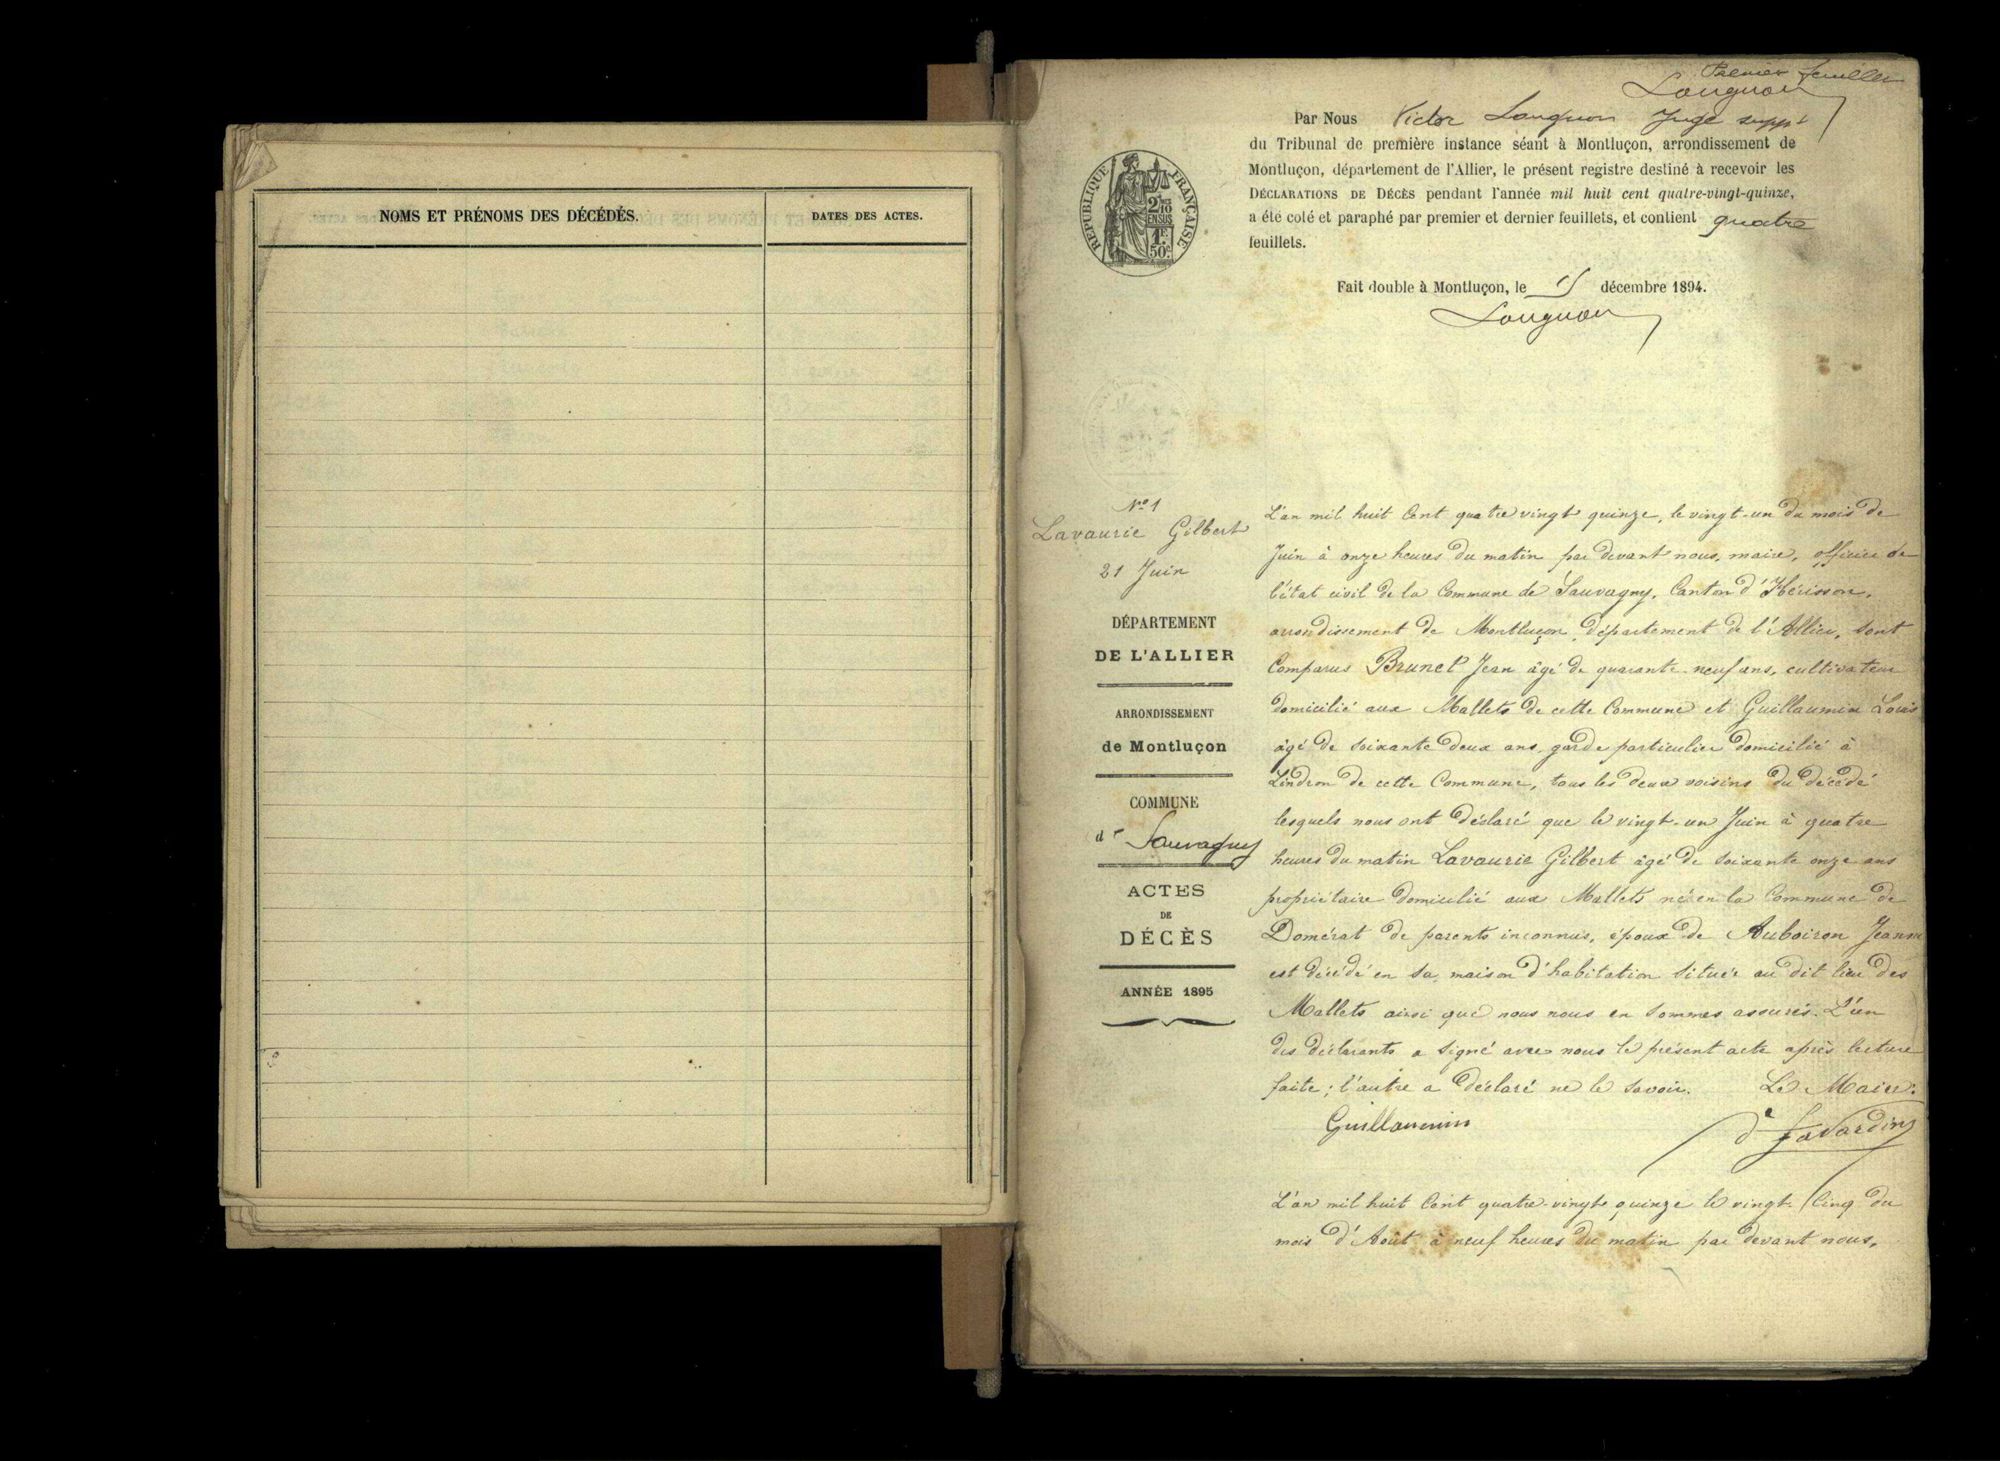 NOMS ET PRÉNOMS DES DÉCÉDÉS.
DATES DES ACTES.
Premier feuillet
Longnon
Par Nous Victor Longnon Juge suppt
du Tribunal de première instance séant à Montluçon, arrondissement de
Montluçon, département de l'Allier, le présent registre destiné à recevoir les
DÉCLARATIONS DE DÉCÈS pendant l'année mil huit cent quatre-vingt-quinze,
a été coté et paraphé par premier et dernier feuillets, et contient quatre
feuillets.
RÉPUBLIQUE FRANÇAISE
2/10
EN SUS
1F
50c
Fait double à Montluçon, le 15 décembre 1894.
Longnon
No 1
Lavaurie Gilbert
21 Juin
DÉPARTEMENT
DE L'ALLIER
ARRONDISSEMENT
de Montluçon
COMMUNE
de Sauvagny
ACTES
DE
DÉCÈS
ANNÉE 1895
L'an mil huit Cent quatre vingt quinze, le vingt-un du mois de
Juin à onze heures du matin par devant nous, maire, officier de
l'état civil de la Commune de Sauvagny, Canton d'Hérisson,
arrondissement de Montluçon, département de l'Allier, sont
Comparus Brunet Jean âgé de quarante-neuf ans, cultivateur
domicilié aux Mallets de cette Commune et Guillaumin Louis
âgé de soixante deux ans, garde particulier domicilié à
Lindron de cette Commune, tous les deux voisins du décédé
lesquels nous ont déclaré que le vingt-un Juin à quatre
heures du matin Lavaurie Gilbert âgé de soixante onze ans
propriétaire domicilié aux Mallets né en la Commune de
Domérat de parents inconnus, époux de Auboiron Jeanne
est décédé en sa maison d'habitation située au dit lieu des
Mallets ainsi que nous nous en sommes assurés. L'un
des déclarants a signé avec nous le présent acte après lecture
faite ; l'autre a déclaré ne le savoir. Le Maire.
Guillaumin
L'an mil huit Cent quatre-vingt quinze le vingt Cinq du
mois d'Août à neuf heures du matin par devant nous,